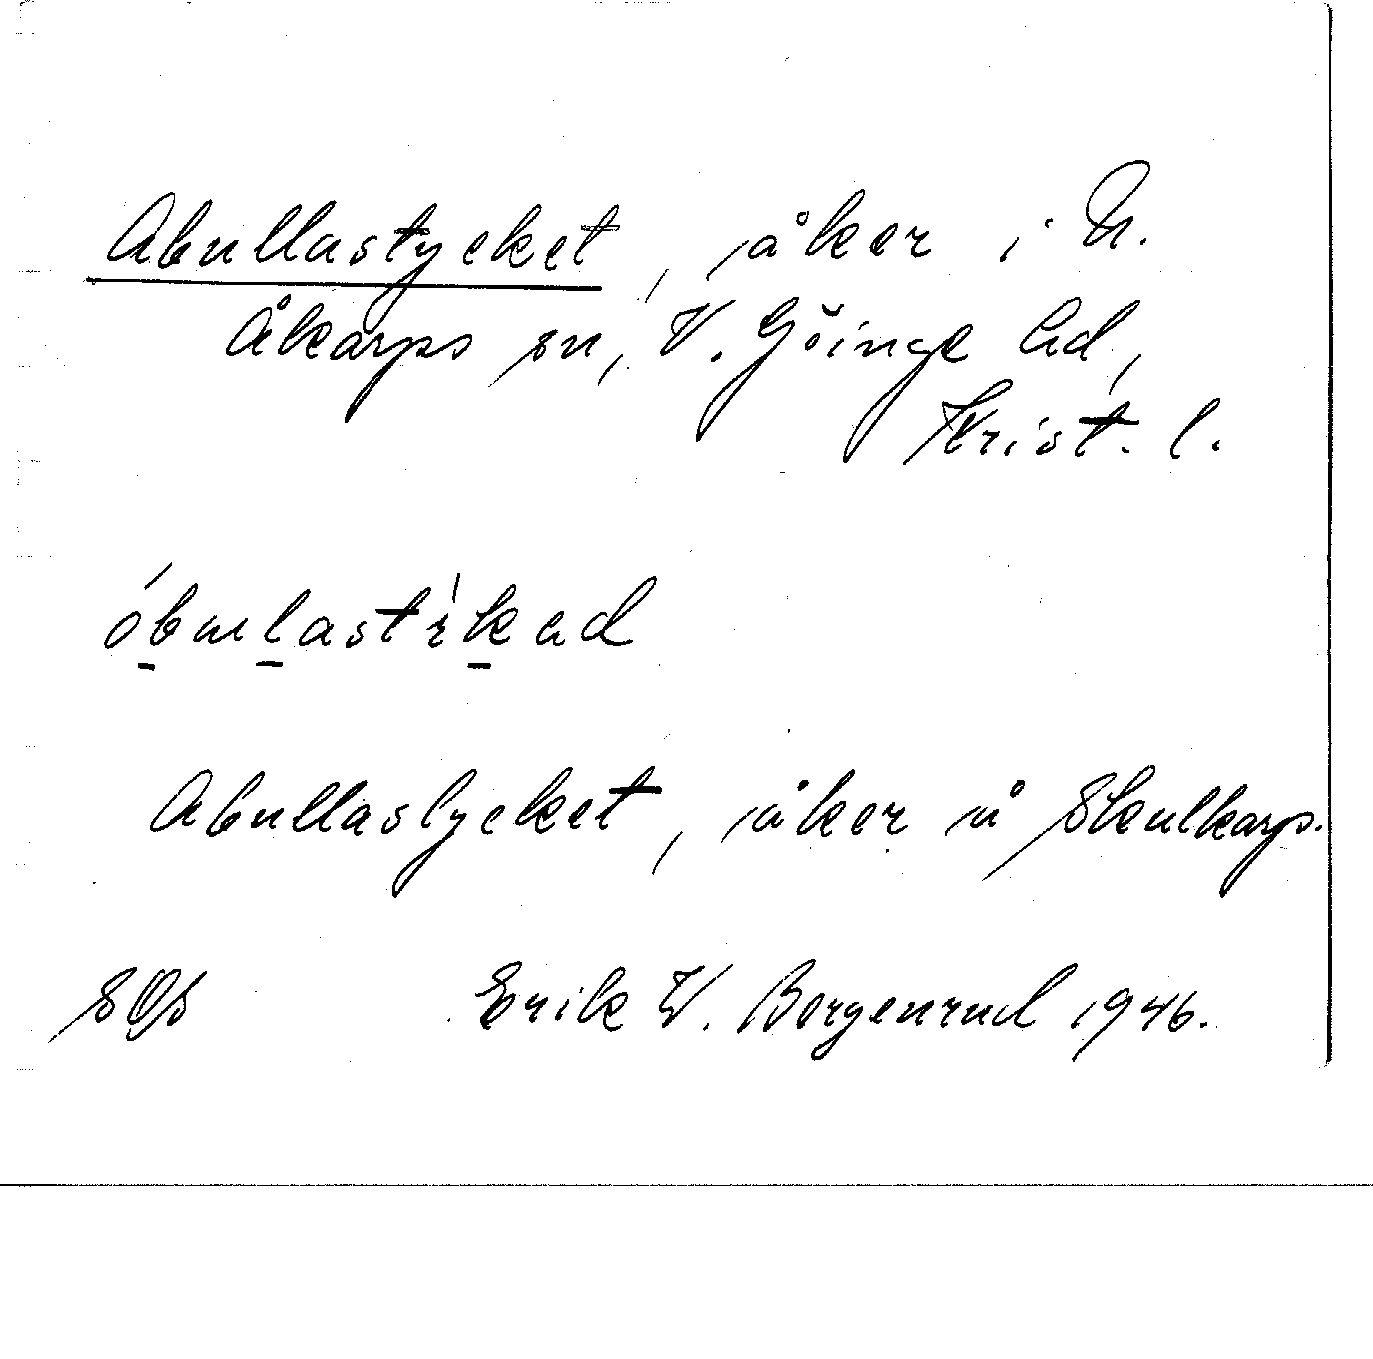 Abullastycket, åker i N.
Åkarps sn, V. Göinge hd,
Krist. l.
óbulastìkad
Abullastycket, åker å Skulkarps.
SOS Erik W. Borgenrud 1946.